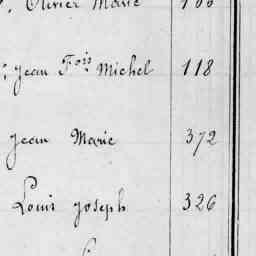 Olivier Marie
Jean Fois Michel 118
Jean Marie 372
Louis Joseph 326